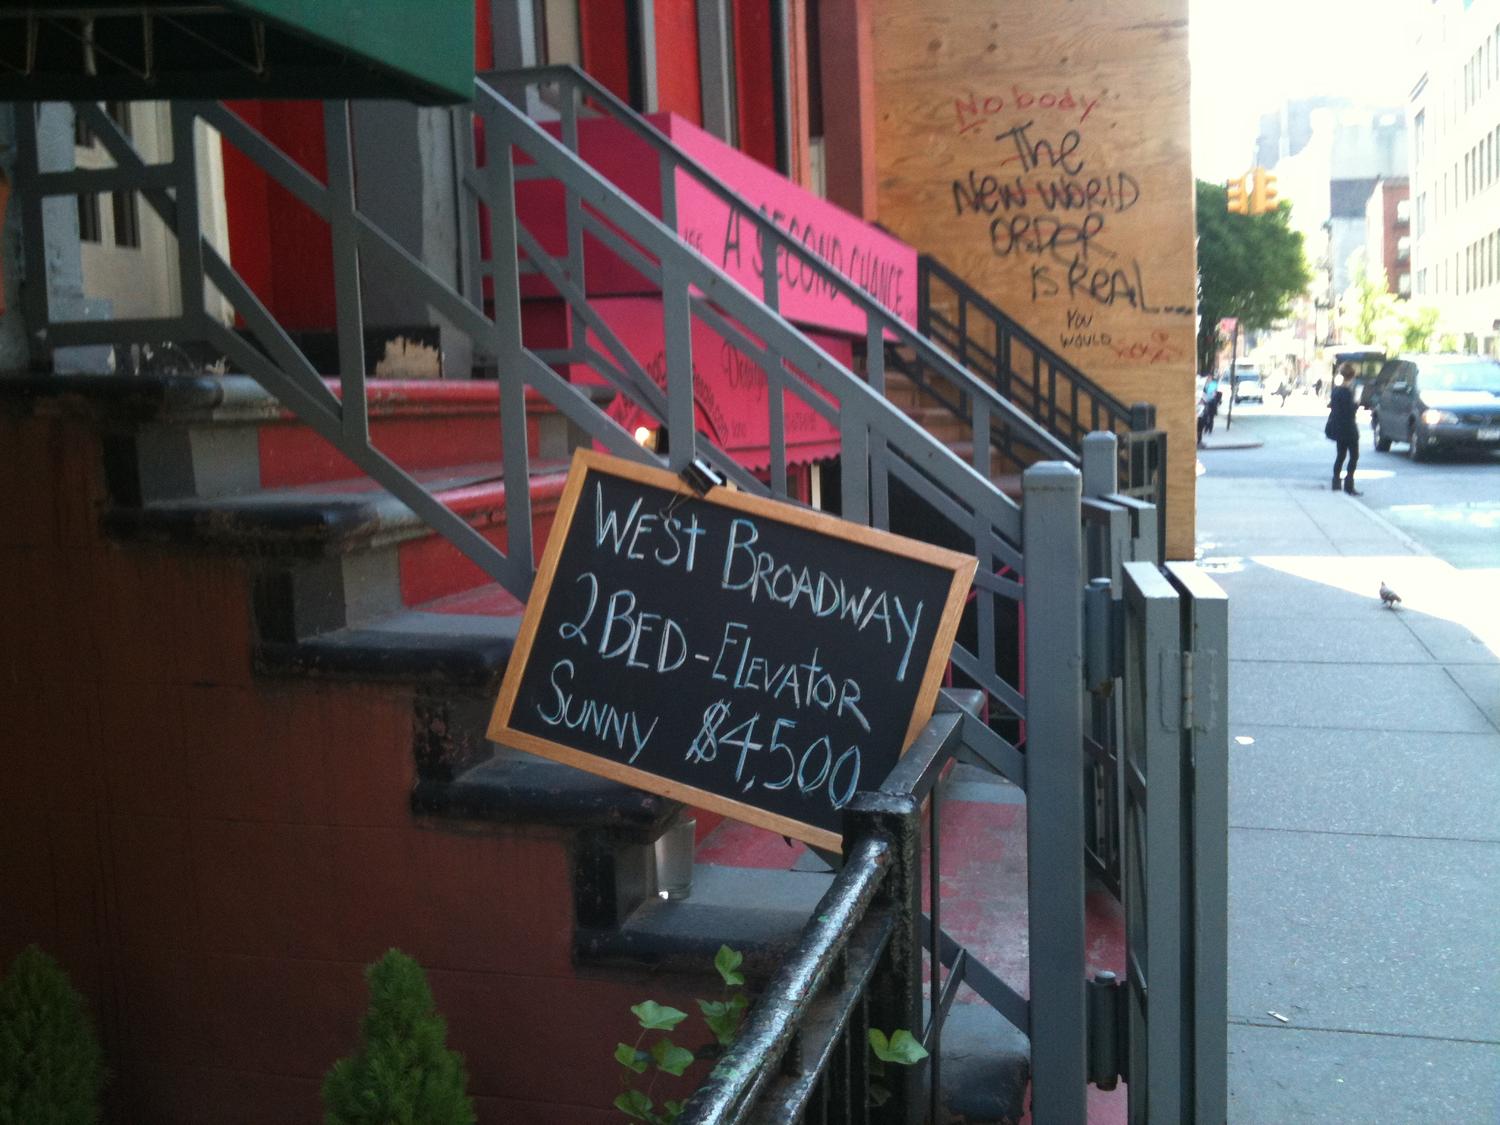 Nobody
The
New World
Order
is Real
You
would
A SECOND CHANCE
WEST BROADWAY
2 BED - ELEVATOR
SUNNY $4,500